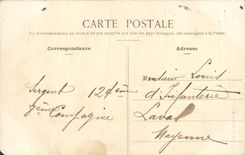 CARTE POSTALE
La Correspondance au recto n'est pas acceptée par tous les pays étrangers (Se renseigner à la Poste)
Correspondance
Adresse
Monsieur Louis
Sergent 124ème
d'Infanterie
8ème Compagnie
Laval
Mayenne